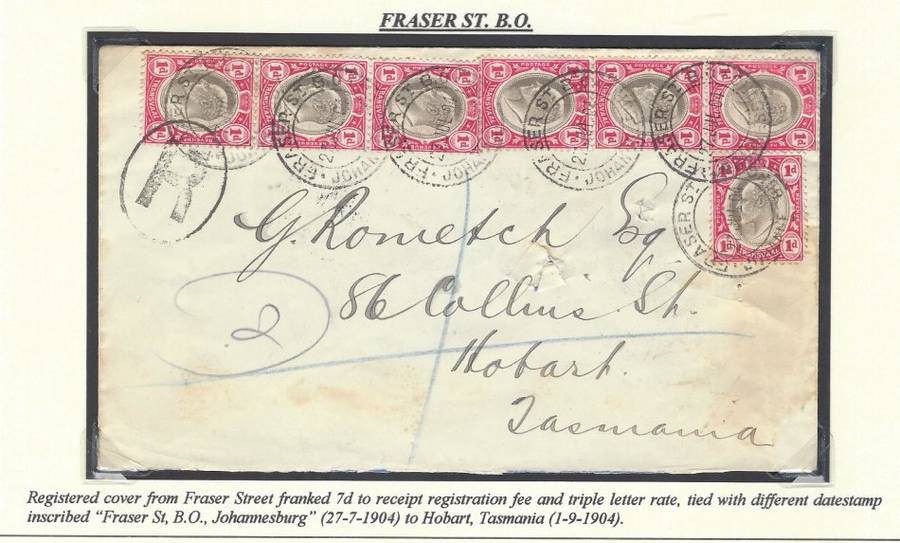 FRASER ST. B.O.
POSTAGE
1d 1d 1d 1d 1d 1d 1d 1d 1d 1d 1d 1d
FRASER ST
R
1d 1d
1d 1d
G. Rometch Esq
86 Collins St.
2
Hobart.
Tasmania
Registered cover from Fraser Street franked 7d to receipt registration fee and triple letter rate, tied with different datestamp
inscribed “Fraser St, B.O., Johannesburg” (27-7-1904) to Hobart, Tasmania (1-9-1904).